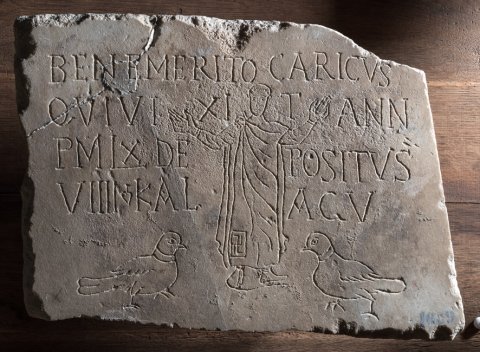 BENEMERITO CARICVS
QVIVI XI T ANN
PMIX DE POSITVS
VIIII KAL AGV